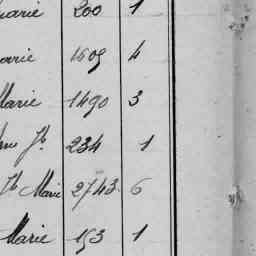 Marie 200 1
Marie 1605 4
Marie 1490 3
Jh 234 1
Jh Marie 2743 6
Marie 153 1